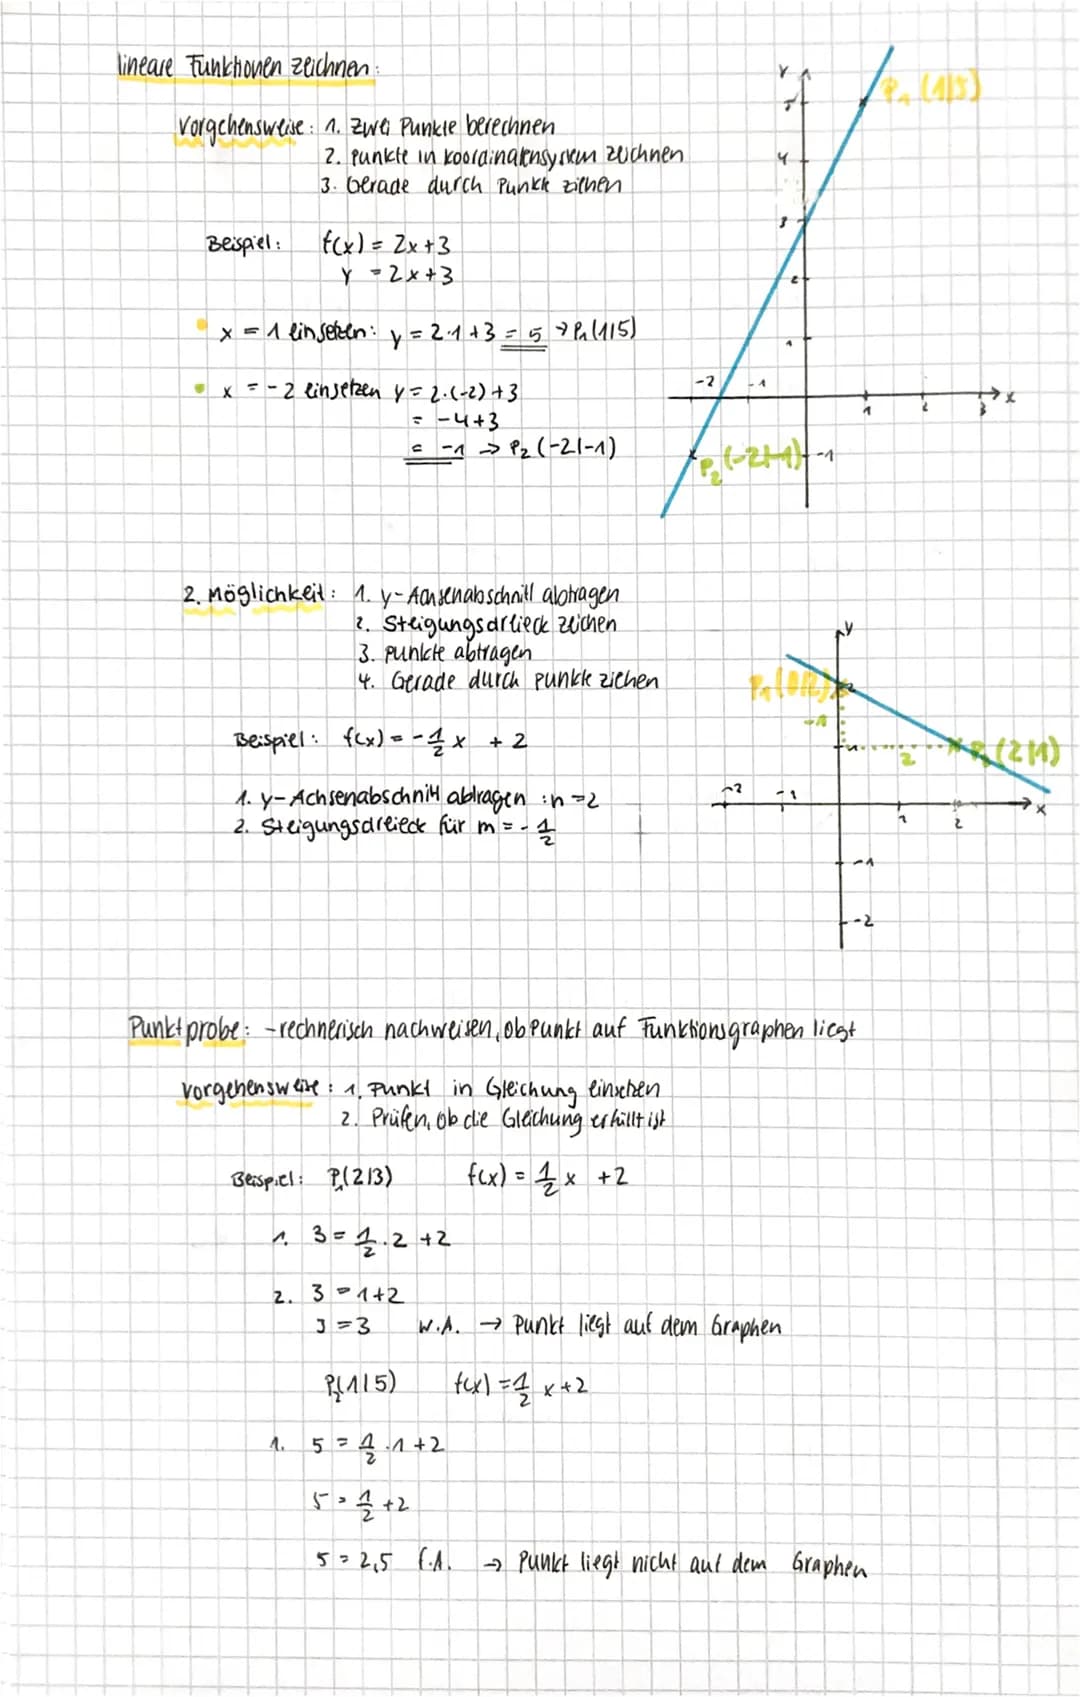 lineare Funktionen zeichnen:
Vorgehensweise: 1. Zwei Punkte berechnen
2. Punkte in Koordinatensystem zeichnen
3. Gerade durch Punkte ziehen
Beispiel: f(x) = 2x+3
y = 2x+3
x = 1 einsetzen: y = 2·1+3 = 5 → P₁(1|5)
x = -2 einsetzen y = 2·(-2)+3
= -4+3
= -1 → P₂(-2|-1)
y
P₁(1|5)
5
4
3
2
1
-2 -1 1 2 3 x
P₂(-2|-1) -1
2. Möglichkeit: 1. y-Achsenabschnitt abtragen
2. Steigungsdreieck zeichen
3. Punkte abtragen
4. Gerade durch Punkte ziehen
Beispiel: f(x) = -1/2 x + 2
1. y-Achsenabschnitt abtragen: n=2
2. Steigungsdreieck für m = -1/2
y
P₁(0|2) 2
-1
1 2 P₂(2|1)
-2 -1 1 2 x
-1
-2
Punktprobe: -rechnerisch nachweisen, ob Punkt auf Funktionsgraphen liegt
Vorgehensweise: 1. Punkt in Gleichung einsetzen
2. Prüfen, ob die Gleichung erfüllt ist
Beispiel: P₁(2|3) f(x) = 1/2 x +2
1. 3 = 1/2·2 +2
2. 3 = 1+2
3 = 3 W.A. → Punkt liegt auf dem Graphen
P₂(1|5) f(x) = 1/2 x+2
1. 5 = 1/2·1+2
5 = 1/2 +2
5 = 2,5 f.A. → Punkt liegt nicht auf dem Graphen